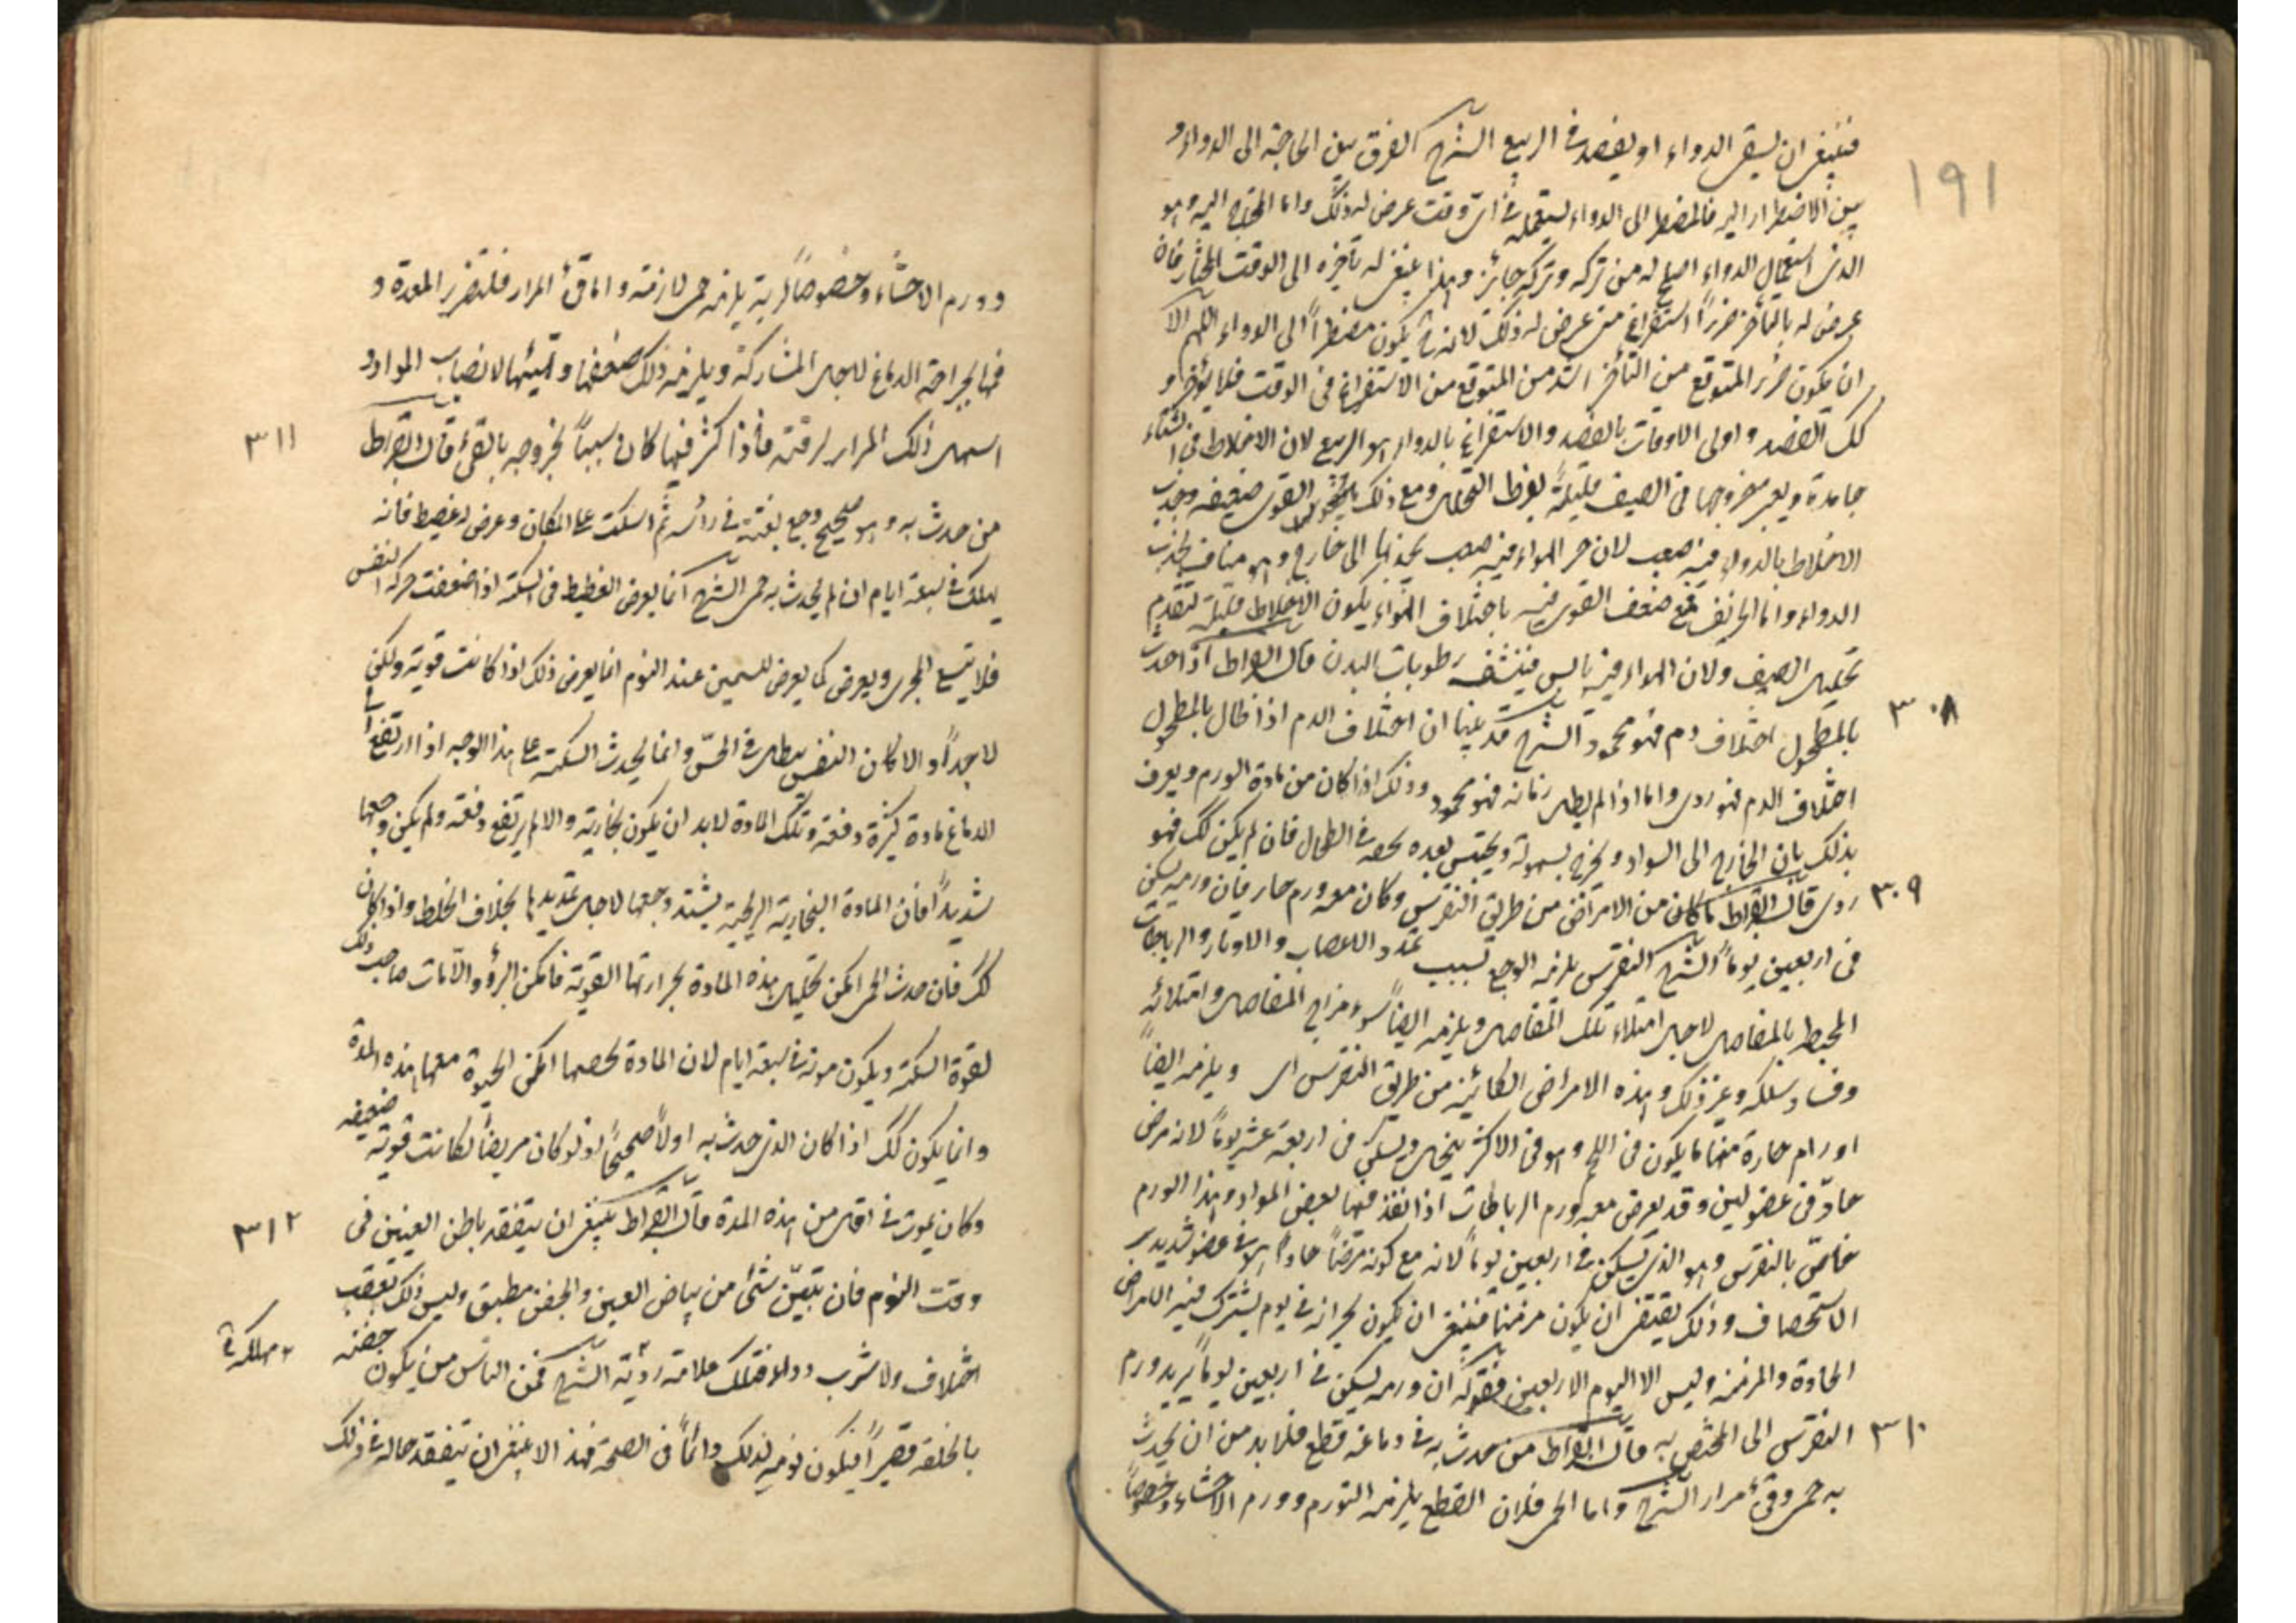 فينبغي ان يسقى الدواء او يفصد في الربيع الشرح الفرق بين الحاجة الى الدواء و
١٩١
بين الاضطرار اليه فالمضطر الى الدواء يستعمله في اىّ وقت عرض له ذلك واما المحتاج اليه وهو
الذى استعمال الدواء اصلح له من تركه وتركه جائز وهذا ينبغى له تأخيره الى الوقت المختار فان
عرض له بالتأخر ضرراً استفرغ متى عرض له ذلك لانه ح يكون مضطراً الى الدواء اللهم الا
ان يكون ضرر المتوقع من التأخر اشد من المتوقع من الاستفراغ فى الوقت فلا يؤخر و
كك الفصد واولى الاوقات بالفصد والاستفراغ بالدواء هو الربيع لان الاخلاط فى الشتاء
جامدة ويعسر خروجها فى الصيف قليلة لفرط التحلل ومع ذلك القوى ضعيفه وجذب
الاخلاط بالدواء فيه صعب لان حر الهواء فيه صعب يجذبها الى خارج وهو مناف لجذب
الدواء واما الخريف فمع ضعف القوى فيه باختلاف الهواء يكون الاخلاط قليلة لتقدم
تحليل الصيف ولان الهواء فيه يابس فينشف رطوبات البدن قال ابقراط اذا حدث
٣٠٨
بالمطحول اختلاف دم فهو محمود الشرح قد بينا ان اختلاف الدم اذا طال بالمطحول
اختلاف الدم فهو ردى واما اذا لم يطل زمانه فهو محمود وذلك اذا كان من مادة الورم ويعرف
بذلك بان الخارج الى السواد ويخرج بسهولة ويحتبس بعده بخفه فى الطحال فان لم يكن كك فهو
٣٠٩
ردى قال ابقراط ما كان من الامراض من طريق النقرس وكان معه ورم حار فان ورمه يسكن
فى اربعين يوماً الشرح النقرس يلزمه الوجع لسبب تمدد الاعصاب والاوتار والرباطات
المحيط بالمفاصل لاجل امتلاء تلك المفاصل ويلزمه ايضاً سوء مزاج المفاصل وامتلائه
وفساد شكله وغير ذلك وهذه الامراض الكائنه من طريق النقرس اى ويلزمه ايضاً
اورام حارة منها ما يكون فى اللحم وهو فى الاكثر يتحلل ويسكن فى اربعة عشر يوماً لانه مرض
حادّ فى عضو لين وقد يعرض معه ورم الرباطات اذا نفذ فيها بعض المواد وهذا الورم
خاصّ بالنقرس وهو الذى يسكن فى اربعين يوماً لانه مع كونه مرضاً حاداً هو فى عضو شديد
الاستحصاف وذلك يقتضى ان يكون مزمناً فينبغى ان يكون بحرانه فى يوم يشترك فيه الامراض
الحادة والمزمنه وليس الا اليوم الاربعين فقوله ان ورمه يسكن فى اربعين يوماً يريد ورم
٣١٠
النقرس اى المختص به قال ابقراط من حدث به فى دماغه قطع فلابد من ان يحدث
به حمى وقئ مرار الشرح واما الحمى فلان القطع يلزمه التورم وورم الاحشاء وخصوصاً
وورم الاحشاء وخصوصاً يلزمه حمى لازمة واما قئ المرار فلتضرر المعدة و
فمها لجراحة الدماغ لاجل المشاركة ويلزمه ذلك ضعفها وتهيئها لانصباب المواد و
٣١١
اسهل ذلك المرار لرقته فاذا كثر فيها كان سبباً لخروجه بالقئ قال ابقراط
من حدث به وهو صحيح وجع بغتة فى رأسه ثم اسكت على المكان وعرض له غطيط فانه
يهلك فى سبعة ايام ان لم يحدث به حمى الشرح انما يعرض الغطيط فى السكتة اذا ضعفت حركة النفس
فلا يتسع المجرى ويعرض كما يعرض للسمين عند النوم انما يعرض ذلك اذا كانت قوية ولكن
لا جداً والا كان النفس يبطل فى الحسّ وانما يحدث السكتة على هذا الوجه اذا ارتفع الى
الدماغ مادة كثيرة دفعة وتلك المادة لابد ان يكون بخارية والا لم يرتفع دفعة ولم يكن وجعها
شديداً فان المادة البخارية الريحية يشتد وجعها لاجل تمديدها بخلاف الخلط واذا كان
كك فان حدث الحمى امكن تحليل هذه المادة بحرارتها القوية فامكن البرؤ والا مات صاحب ذلك
لقوة السكتة ويكون موته فى سبعة ايام لان المادة امكن الحيوة معها هذه المدة
وانما يكون كك اذا كان الذى حدث به اولاً صحيحاً اذ لو كان مريضاً لكانت قوته ضعيفه
٣١٢
وكان يموت فى اقل من هذه المدة قال ابقراط ينبغى ان يتفقد باطن العينين فى
وقت النوم فان تبيّن شئ من بياض العين والجفن مطبق وليس ذلك بعقب
اختلاف ولا شرب دواء فتلك علامة رديّة الشرح فمن الناس من يكون جفنه
مهلكة
بالخلقة قصيراً فيكون نومه لذلك دائماً فى الصحة فهذا لا ينبغى ان يتفقد حاله فى ذلك